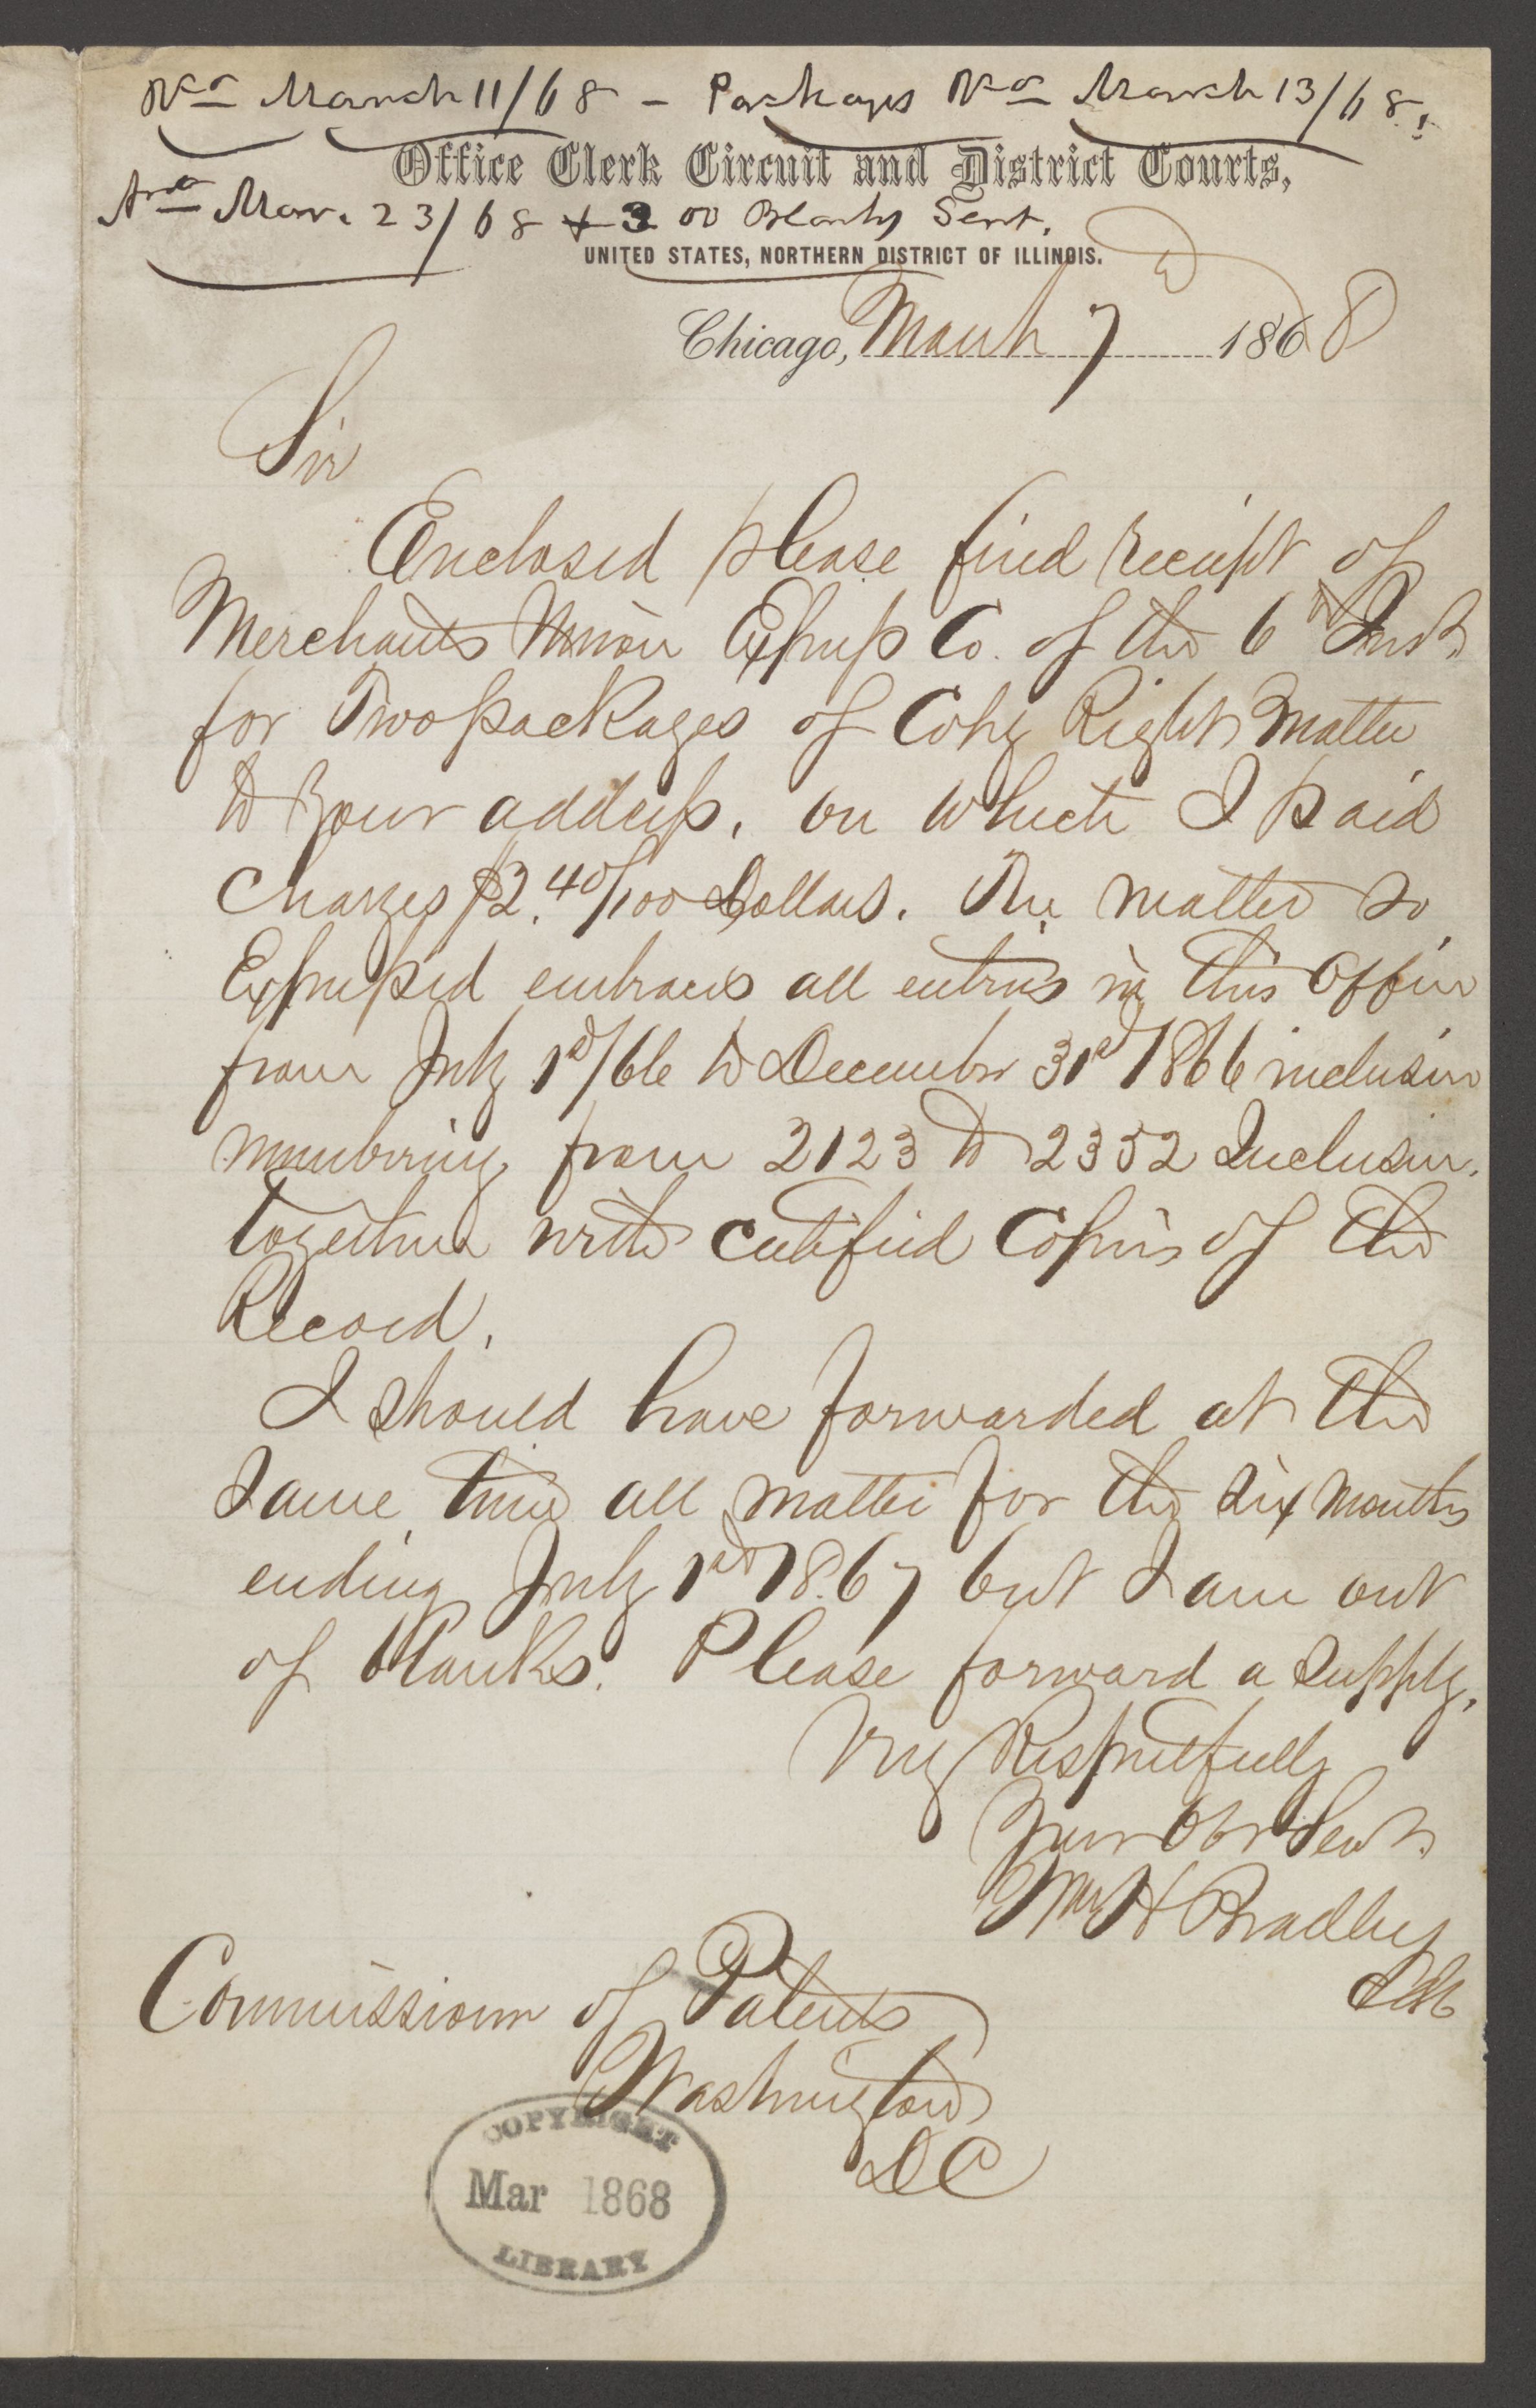 Recd March 11/68 - Packages Recd March 13/68.
Office Clerk Circuit and District Courts,
Ansd Mar. 23/68 & 300 Blanks Sent.
UNITED STATES, NORTHERN DISTRICT OF ILLINOIS.
Chicago, March 7 1868
Sir
Enclosed please find receipt of
Merchants Union Express Co. of the 6th Inst.
for Two packages of Copy Right Matter
to your address, on which I paid
Charges $2.40/100 Dollars. The matter so
Expressed embraces all entries in this Office
from July 1st/66 to December 31st 1866 inclusive
numbering from 2123 to 2352 Inclusive.
together with certified Copies of the
Record.
I should have forwarded at the
Same time all matter for the Six Months
ending July 1st 1867 but I am out
of blanks. Please forward a supply.
Very Respectfully
Your Obt Servt.
Wm H Bradley
Clk
Commissioner of Patents
Washington
DC
COPYRIGHT
Mar 1868
LIBRARY